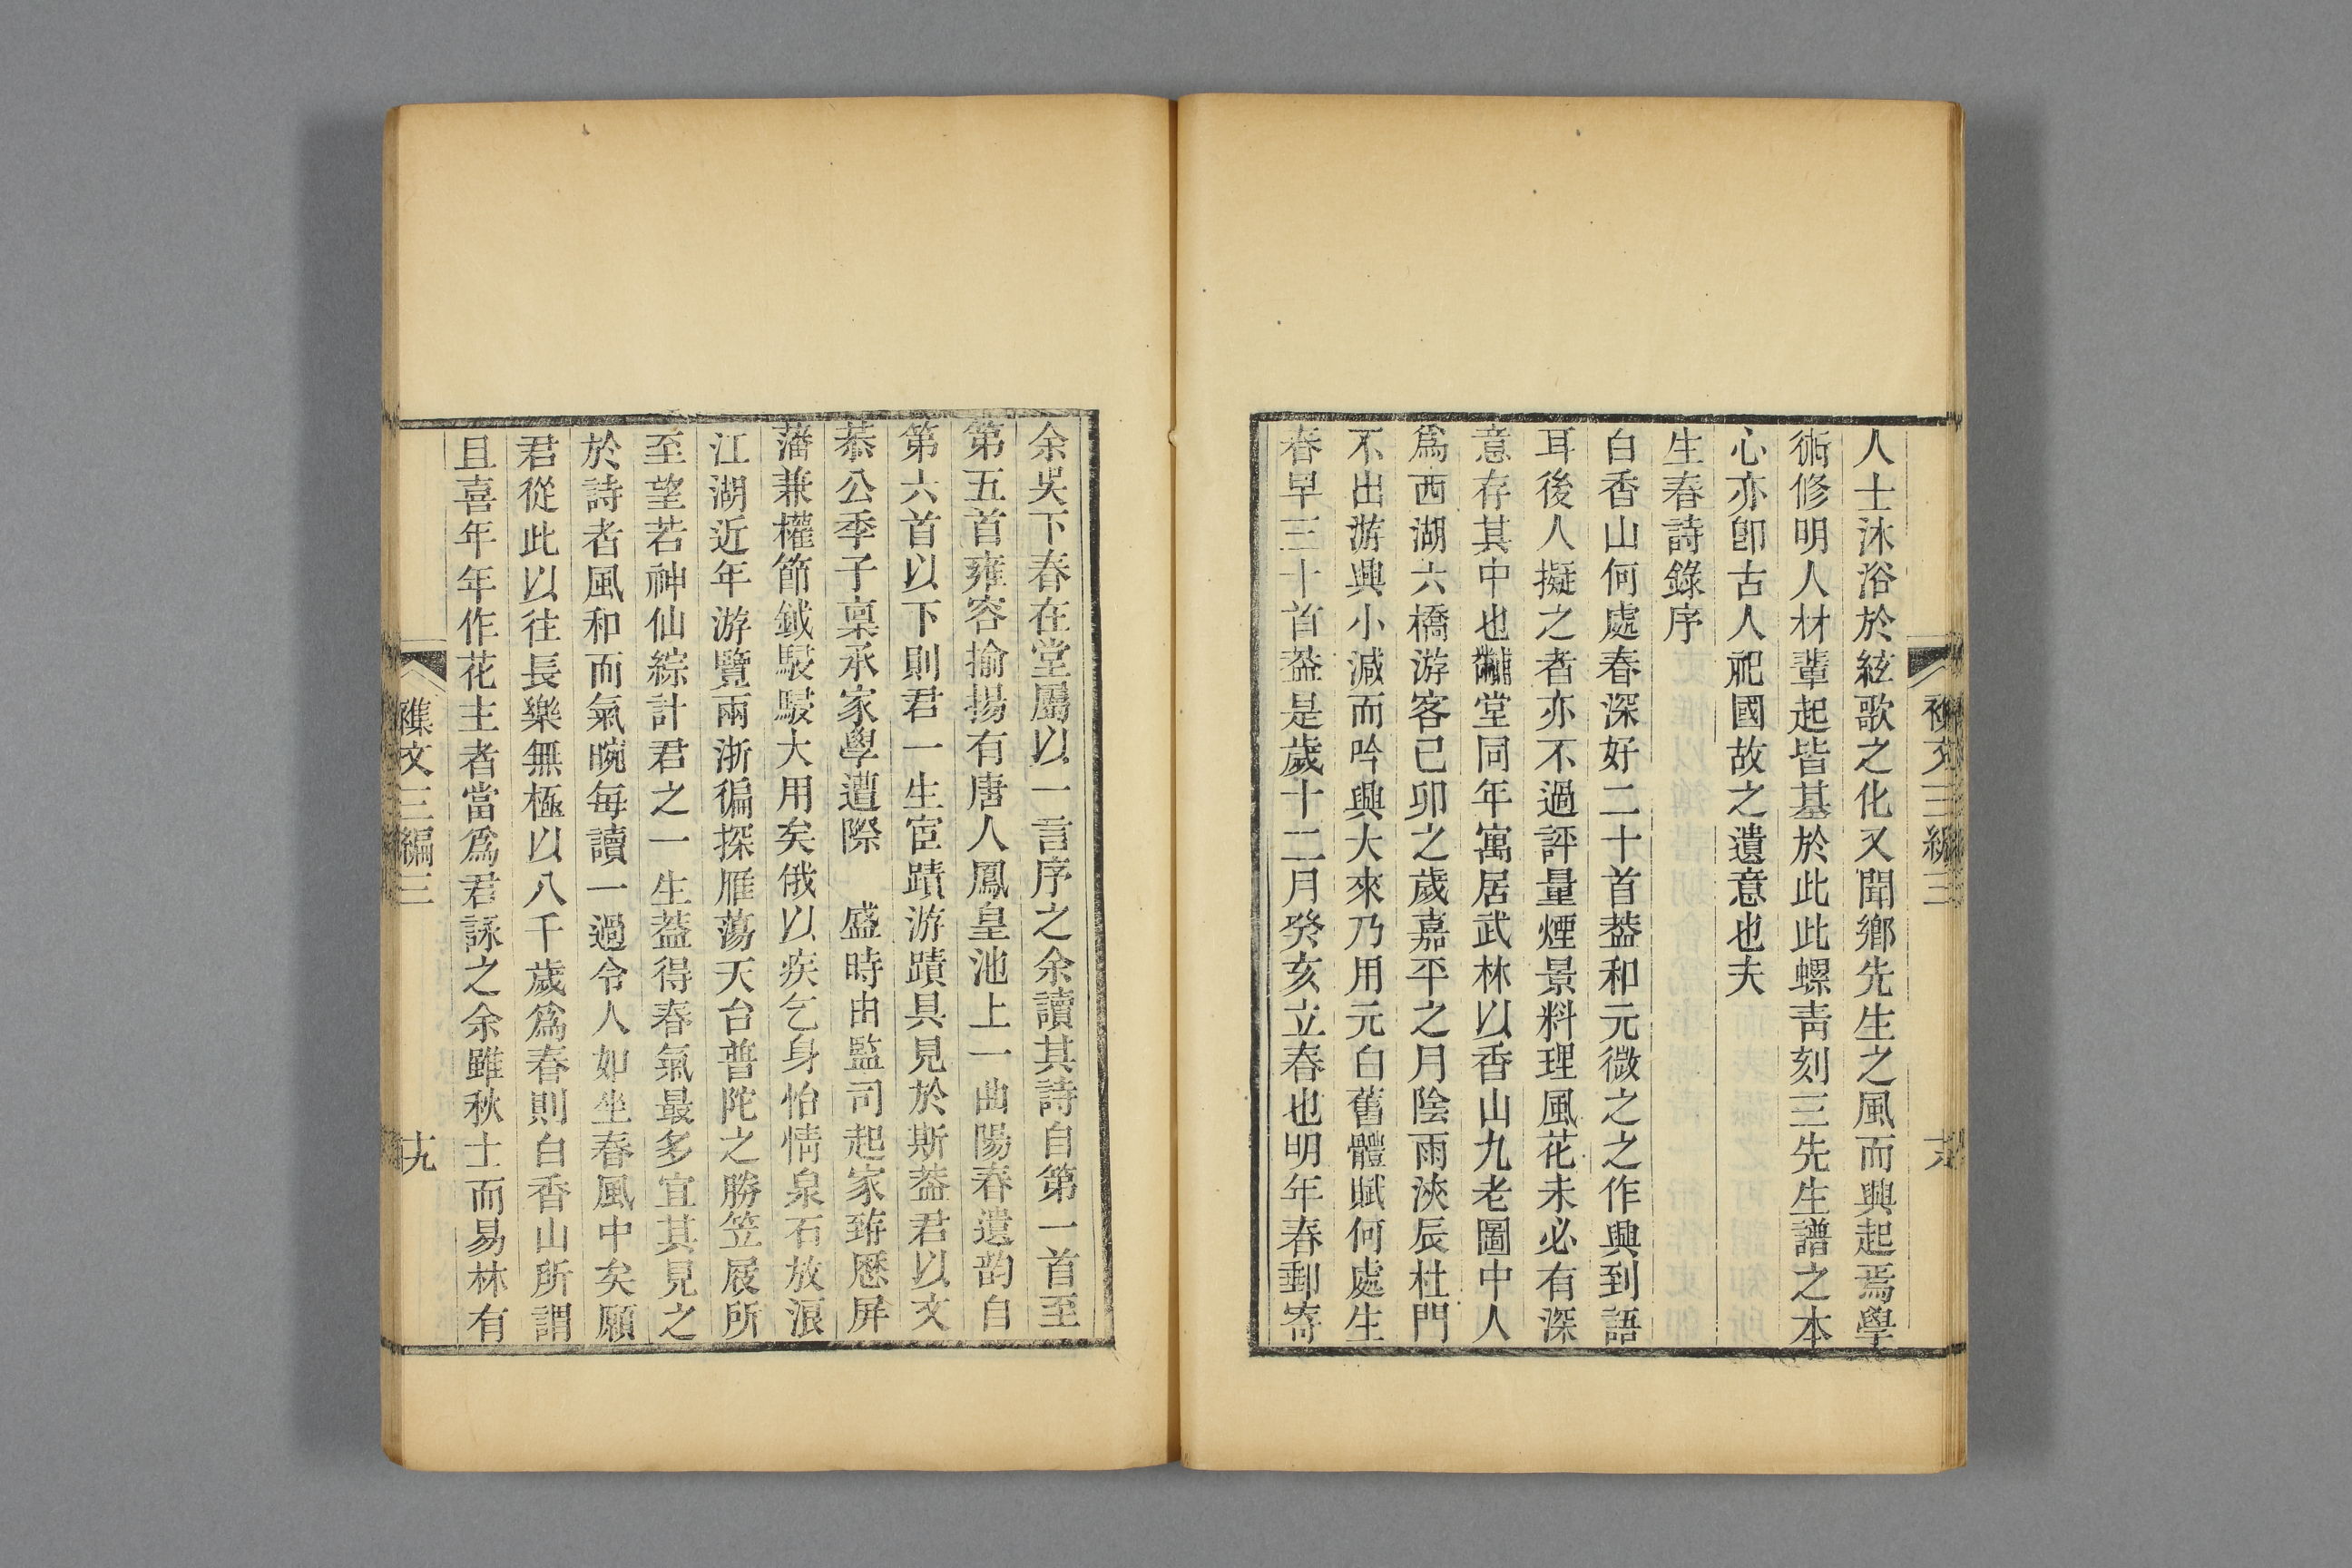 人士沐浴於絃歌之化又聞鄉先生之風而興起焉學
術修明人材輩起皆基於此此螺青刻三先生譜之本
心亦卽古人祀國故之遺意也夫
生春詩錄序
白香山何處春深好二十首葢和元微之之作興到語
耳後人擬之者亦不過評量煙景料理風花未必有深
意存其中也黼堂同年寓居武林以香山九老圖中人
爲西湖六橋游客己卯之歲嘉平之月陰雨浹辰杜門
不出游興小減而吟興大來乃用元白舊體賦何處生
春早三十首葢是歲十二月癸亥立春也明年春郵寄
襍文三編三
六
余吳下春在堂屬以一言序之余讀其詩自第一首至
第五首雍容揄揚有唐人鳳皇池上一曲陽春遺韵自
第六首以下則君一生宦蹟游蹟具見於斯葢君以文
恭公季子稟承家學遭際　盛時由監司起家荐歷屏
藩兼權節鉞駸駸大用矣俄以疾乞身怡情泉石放浪
江湖近年游覽兩浙徧探雁蕩天台普陀之勝笠屐所
至望若神仙綜計君之一生葢得春氣最多宜其見之
於詩者風和而氣晼每讀一過令人如坐春風中矣願
君從此以往長樂無極以八千歲爲春則白香山所謂
且喜年年作花主者當爲君詠之余雖秋士而易林有
襍文三編三
十九